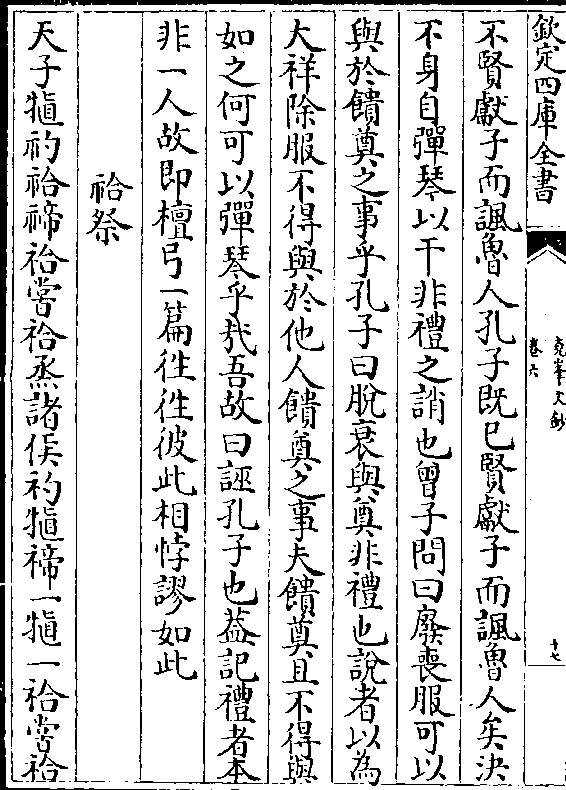 欽定四庫全書
堯峯文鈔
卷六
十七
不賢獻子而諷魯人孔子既已賢獻子而諷魯人矣決
不身自彈琴以干非禮之誚也曾子問曰廢喪服可以
與於饋奠之事乎孔子曰脫衰與奠非禮也說者以為
大祥除服不得與於他人饋奠之事夫饋奠且不得與
如之何可以彈琴乎㢤吾故曰誣孔子也葢記禮者本
非一人故即檀弓一篇往往彼此相悖謬如此
祫祭
天子犆礿祫禘祫嘗祫烝諸侯礿犆禘一犆一祫嘗祫